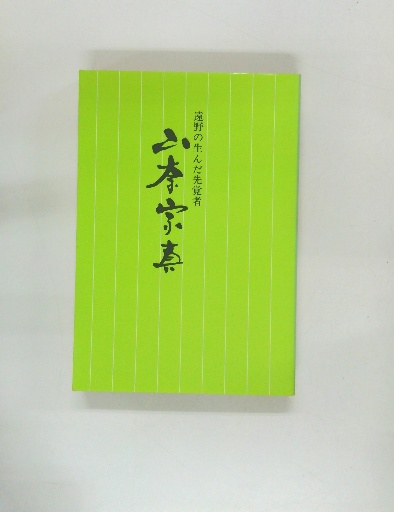 遠野の生んだ先覚者
山奈宗真